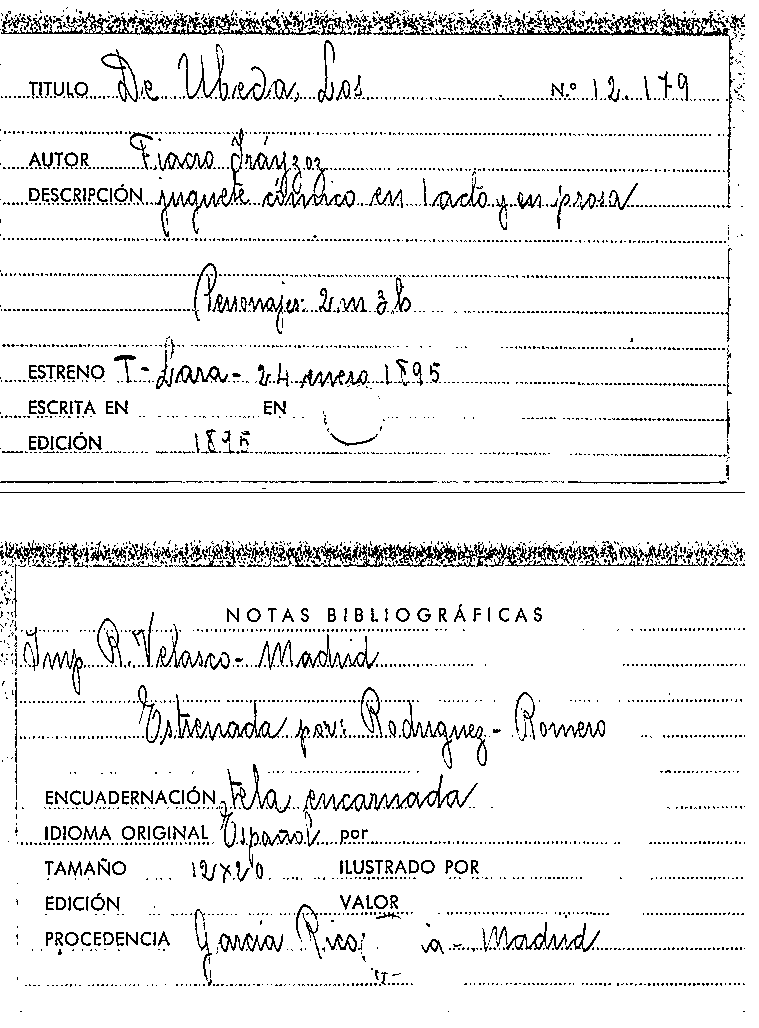 TITULO De Ubeda, Los N.º 12.179
AUTOR Fiacro Iráyzoz
DESCRIPCIÓN juguete cómico en 1 acto y en prosa
Personajes: 2 m 3 h
ESTRENO T- Lara- 24 enero 1895
ESCRITA EN EN
EDICIÓN 1895
NOTAS BIBLIOGRÁFICAS
Imp R. Velasco- Madrid
Estrenada por: Rodriguez- Romero
ENCUADERNACIÓN tela encarnada
IDIOMA ORIGINAL Español por
TAMAÑO 12x20 ILUSTRADO POR
EDICIÓN VALOR
PROCEDENCIA García Rico - Madrid